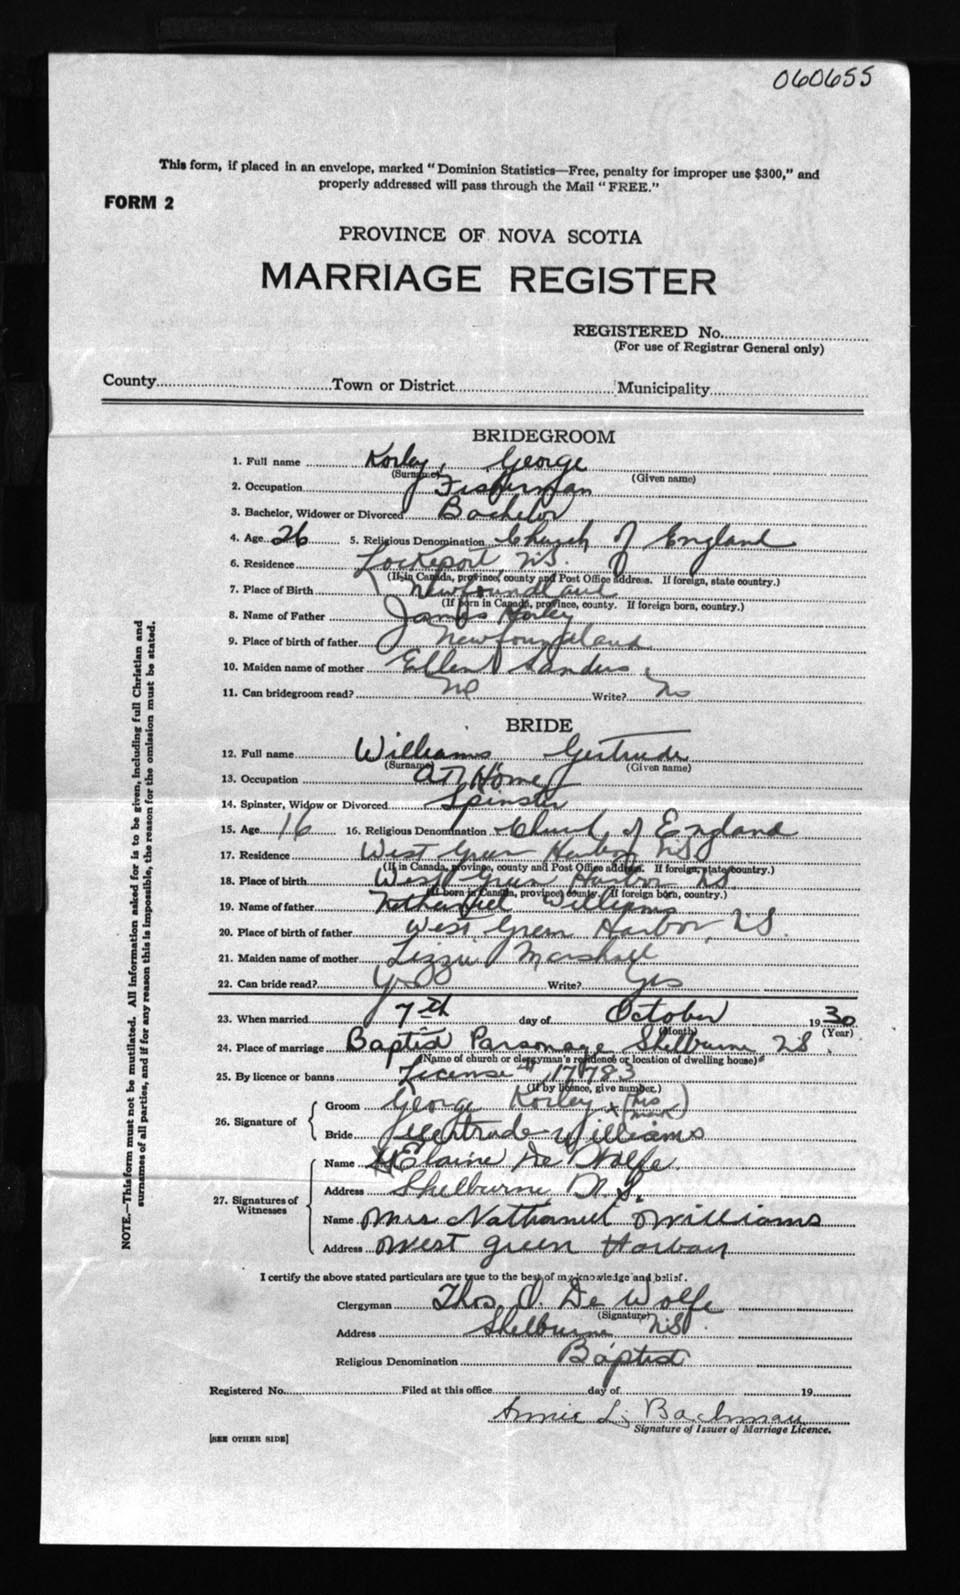 060655
This form, if placed in an envelope, marked "Dominion Statistics—Free, penalty for improper use $300," and
properly addressed will pass through the Mail "FREE."
FORM 2
PROVINCE OF NOVA SCOTIA
MARRIAGE REGISTER
REGISTERED No.
(For use of Registrar General only)
County Town or District Municipality
BRIDEGROOM
1. Full name Korley, George
(Surname) (Given name)
2. Occupation Fisherman
3. Bachelor, Widower or Divorced Bachelor
4. Age 26 5. Religious Denomination Church of England
6. Residence Lockeport, N.S.
(If in Canada, province, county and Post Office address. If foreign, state country.)
7. Place of Birth Newfoundland
(If born in Canada, province, county. If foreign born, country.)
8. Name of Father James Korley
9. Place of birth of father Newfoundland
10. Maiden name of mother Ellen Sanders
11. Can bridegroom read? No Write? No
BRIDE
12. Full name Williams Gertrude
(Surname) (Given name)
13. Occupation At Home
14. Spinster, Widow or Divorced Spinster
15. Age 16 16. Religious Denomination Church of England
17. Residence West Green Harbor N.S.
(If in Canada, province, county and Post Office address. If foreign, state country.)
18. Place of birth West Green Harbor N.S.
(If born in Canada, province, county. If foreign born, country.)
19. Name of father Nathaniel Williams
20. Place of birth of father West Green Harbor, N.S.
21. Maiden name of mother Lizzie Marshall
22. Can bride read? Yes Write? Yes
23. When married 7th day of October 1930
(Month) (Year)
24. Place of marriage Baptist Parsonage Shelburne N.S.
(Name of church or clergyman's residence or location of dwelling house)
25. By licence or banns License # 17783
(If by licence, give number.)
26. Signature of Groom George Korley x (his mark)
Bride Gertrude Williams
27. Signatures of Witnesses Name Elaine De Wolfe
Address Shelburne, N.S.
Name Mrs Nathaniel Williams
Address West green Harbor
I certify the above stated particulars are true to the best of my knowledge and belief.
Clergyman Thos. O. De Wolfe
(Signature)
Address Shelburne N.S.
Religious Denomination Baptist
Registered No. Filed at this office day of 19
Annie L. Bachman
Signature of Issuer of Marriage Licence.
[SEE OTHER SIDE]
NOTE.—This form must not be mutilated. All information asked for is to be given, including full Christian and
surnames of all parties, and if for any reason this is impossible, the reason for the omission must be stated.